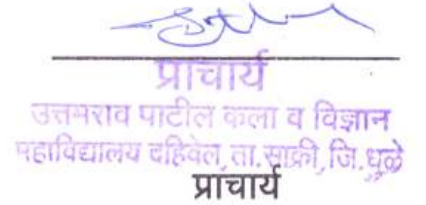 प्राचार्य
उत्तमराव पाटील कला व विज्ञान
महाविद्यालय दहिवेल, ता. साक्री, जि. धुळे
प्राचार्य